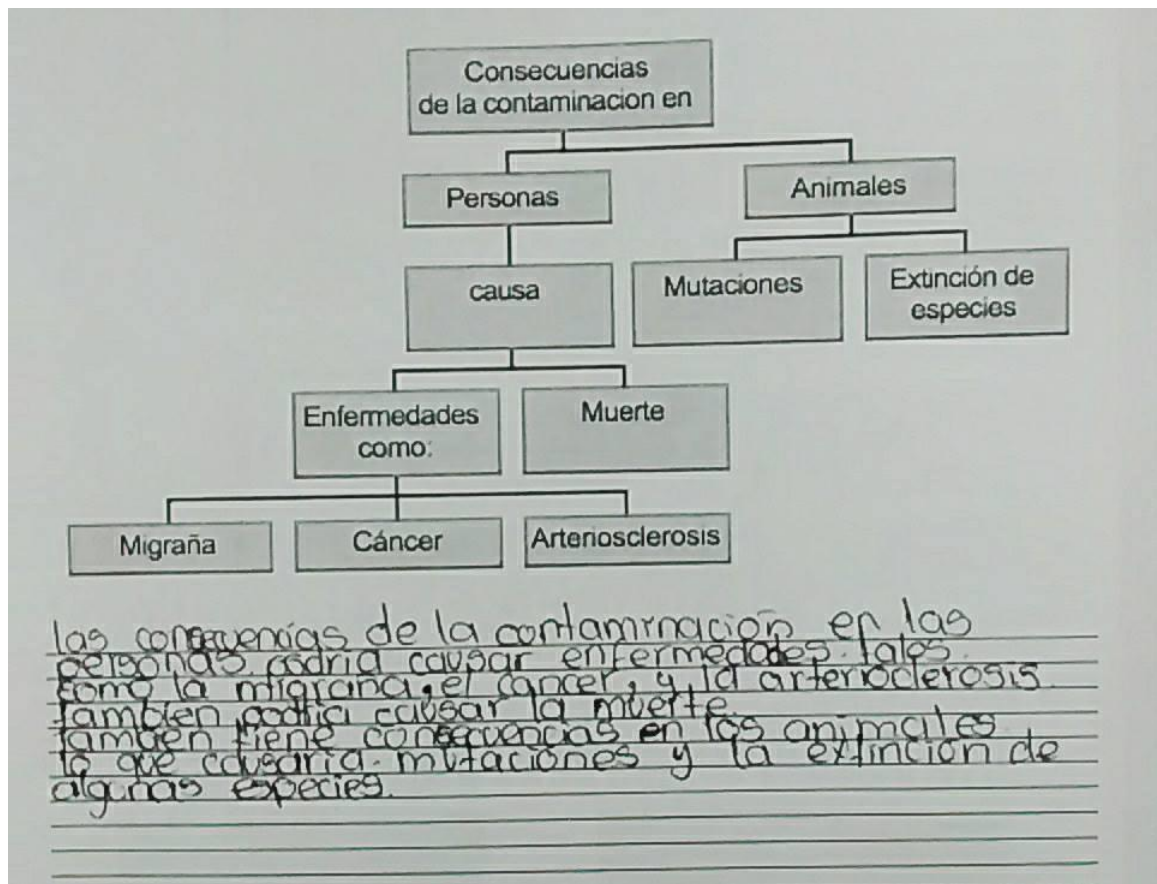 Consecuencias
de la contaminacion en
Personas
Animales
causa
Mutaciones
Extinción de
especies
Enfermedades
como:
Muerte
Migraña
Cáncer
Arteriosclerosis
las consecuencias de la contaminación en las
personas podria causar enfermedades. tales
como la migraña, el cancer, y la arterioclerosis
tambien podria causar la muerte.
tambien tiene consecuencias en los animales
lo que causaria mutaciones y la extinción de
algunas especies.